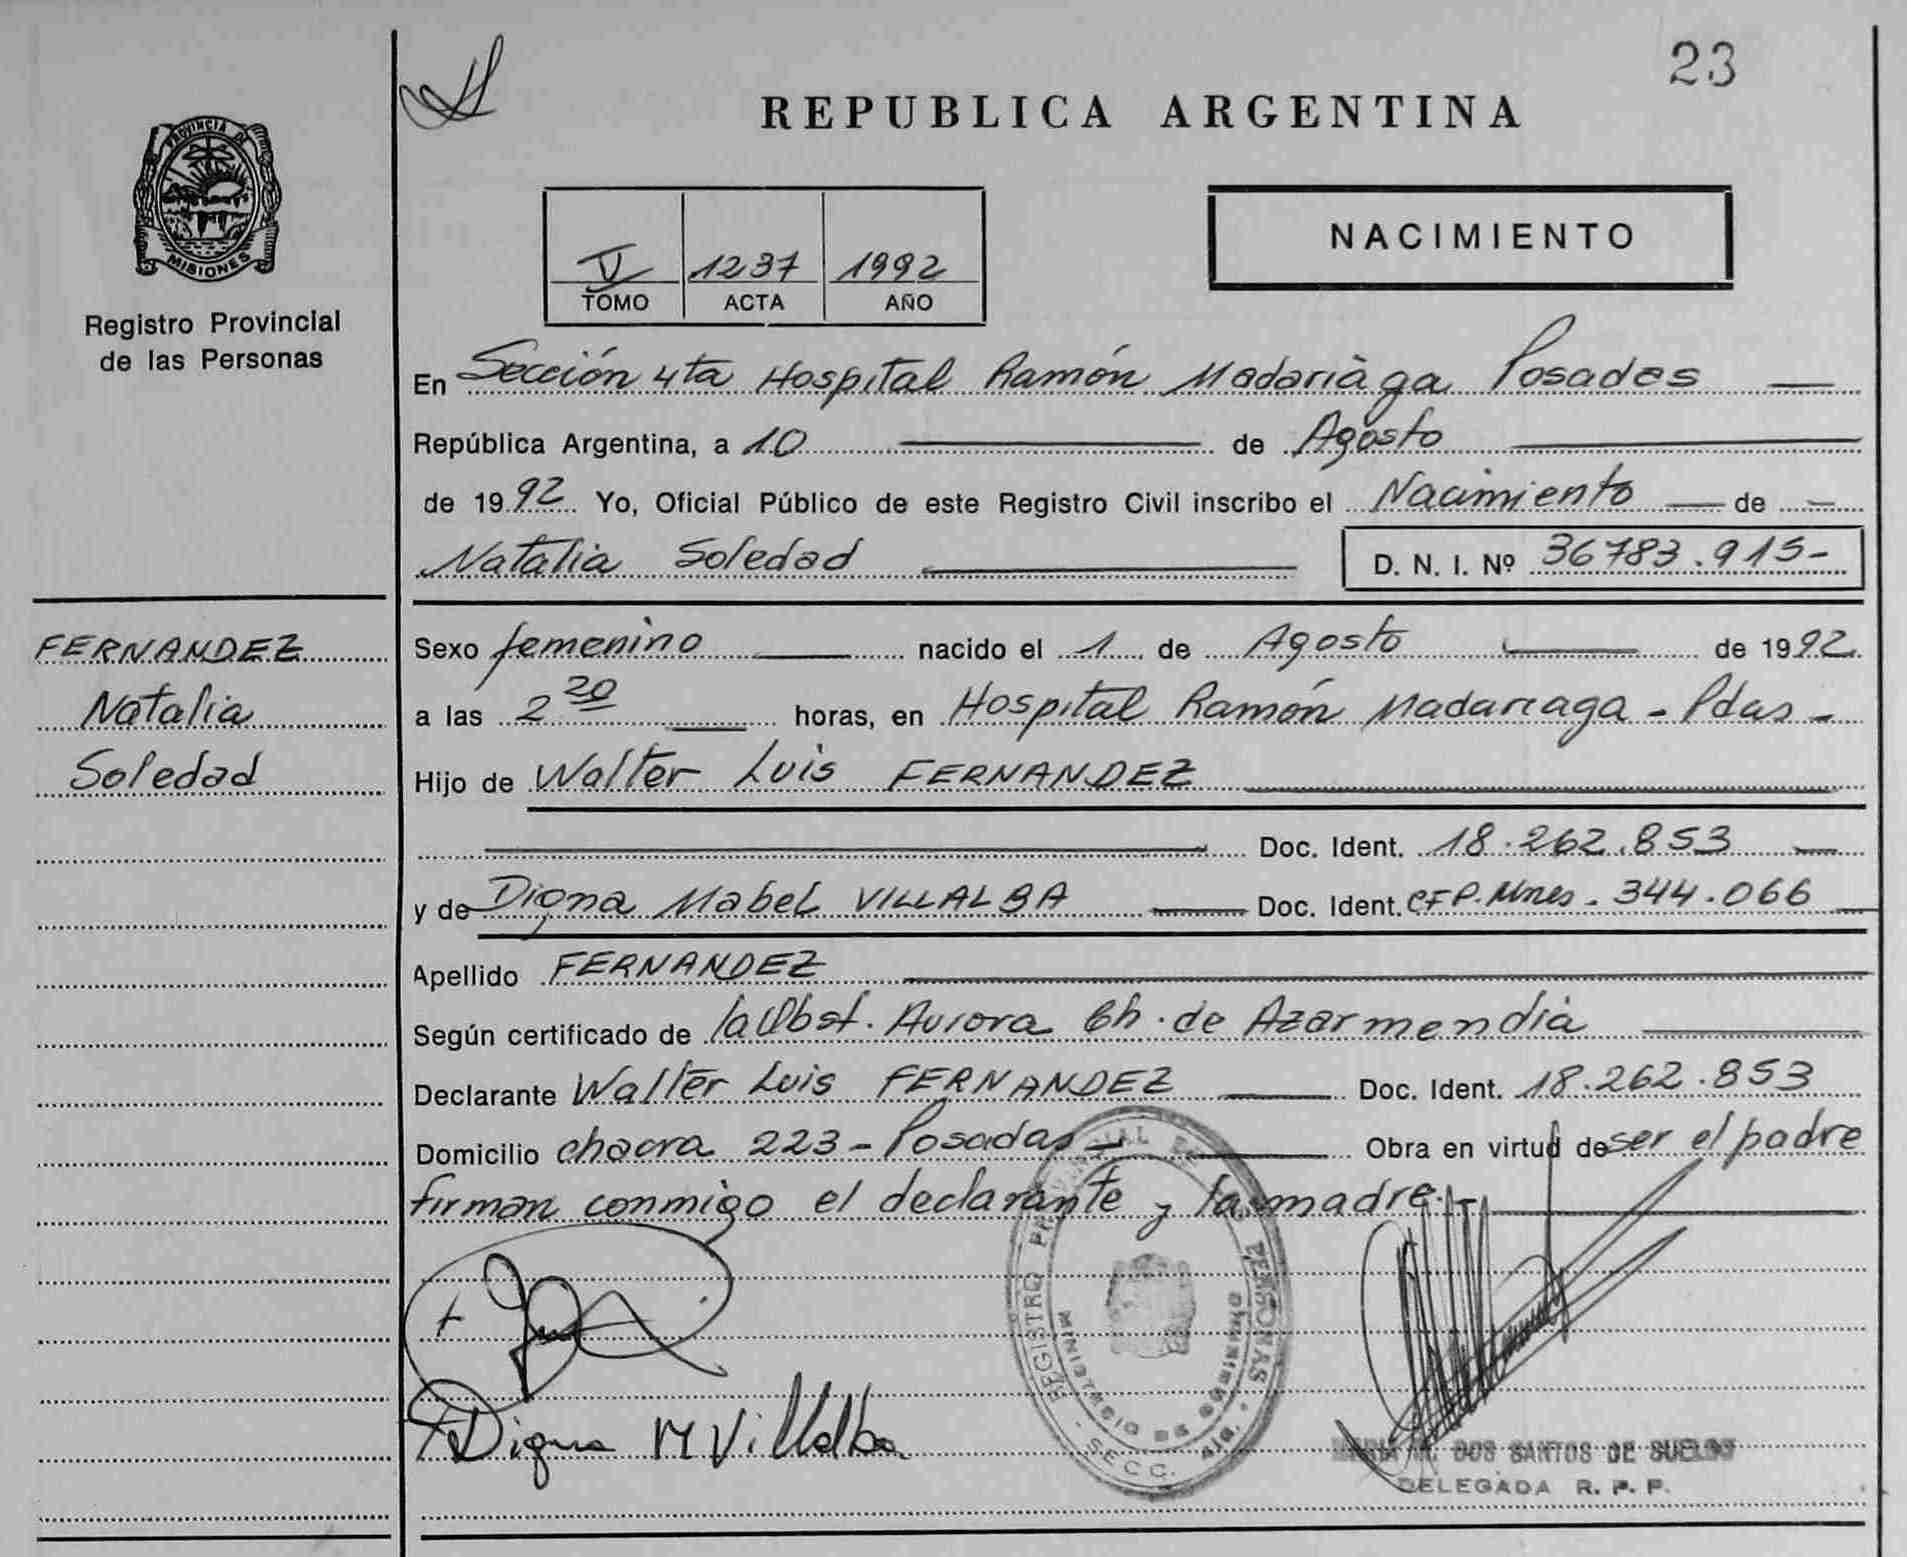 23
REPUBLICA ARGENTINA
PROVINCIA DE
MISIONES
Registro Provincial
de las Personas
V 1237 1992
TOMO ACTA AÑO
NACIMIENTO
En Sección 4ta Hospital Ramón Madariaga Posadas
República Argentina, a 10 de Agosto
de 1992 Yo, Oficial Público de este Registro Civil inscribo el Nacimiento de
Natalia Soledad D. N. I. Nº 36783.915-
FERNANDEZ
Natalia
Soledad
Sexo femenino nacido el 1 de Agosto de 1992
a las 2 20 horas, en Hospital Ramón Madariaga - Pdas -
Hijo de Walter Luis FERNANDEZ
Doc. Ident. 18.262.853
y de Digna Mabel VILLALBA Doc. Ident. CFP. Mnes. 344.066
Apellido FERNANDEZ
Según certificado de la Obst. Aurora Ch. de Azarmendia
Declarante Walter Luis FERNANDEZ Doc. Ident. 18.262.853
Domicilio chacra 223 - Posadas - Obra en virtud de ser el padre
firman conmigo el declarante y la madre. -
REGISTRO PROVINCIAL DE LAS PERSONAS
MINISTERIO DE GOBIERNO
SECC. 4ta.
Digna M Villalba
DOS SANTOS DE SUELDO
DELEGADA R. P. P.